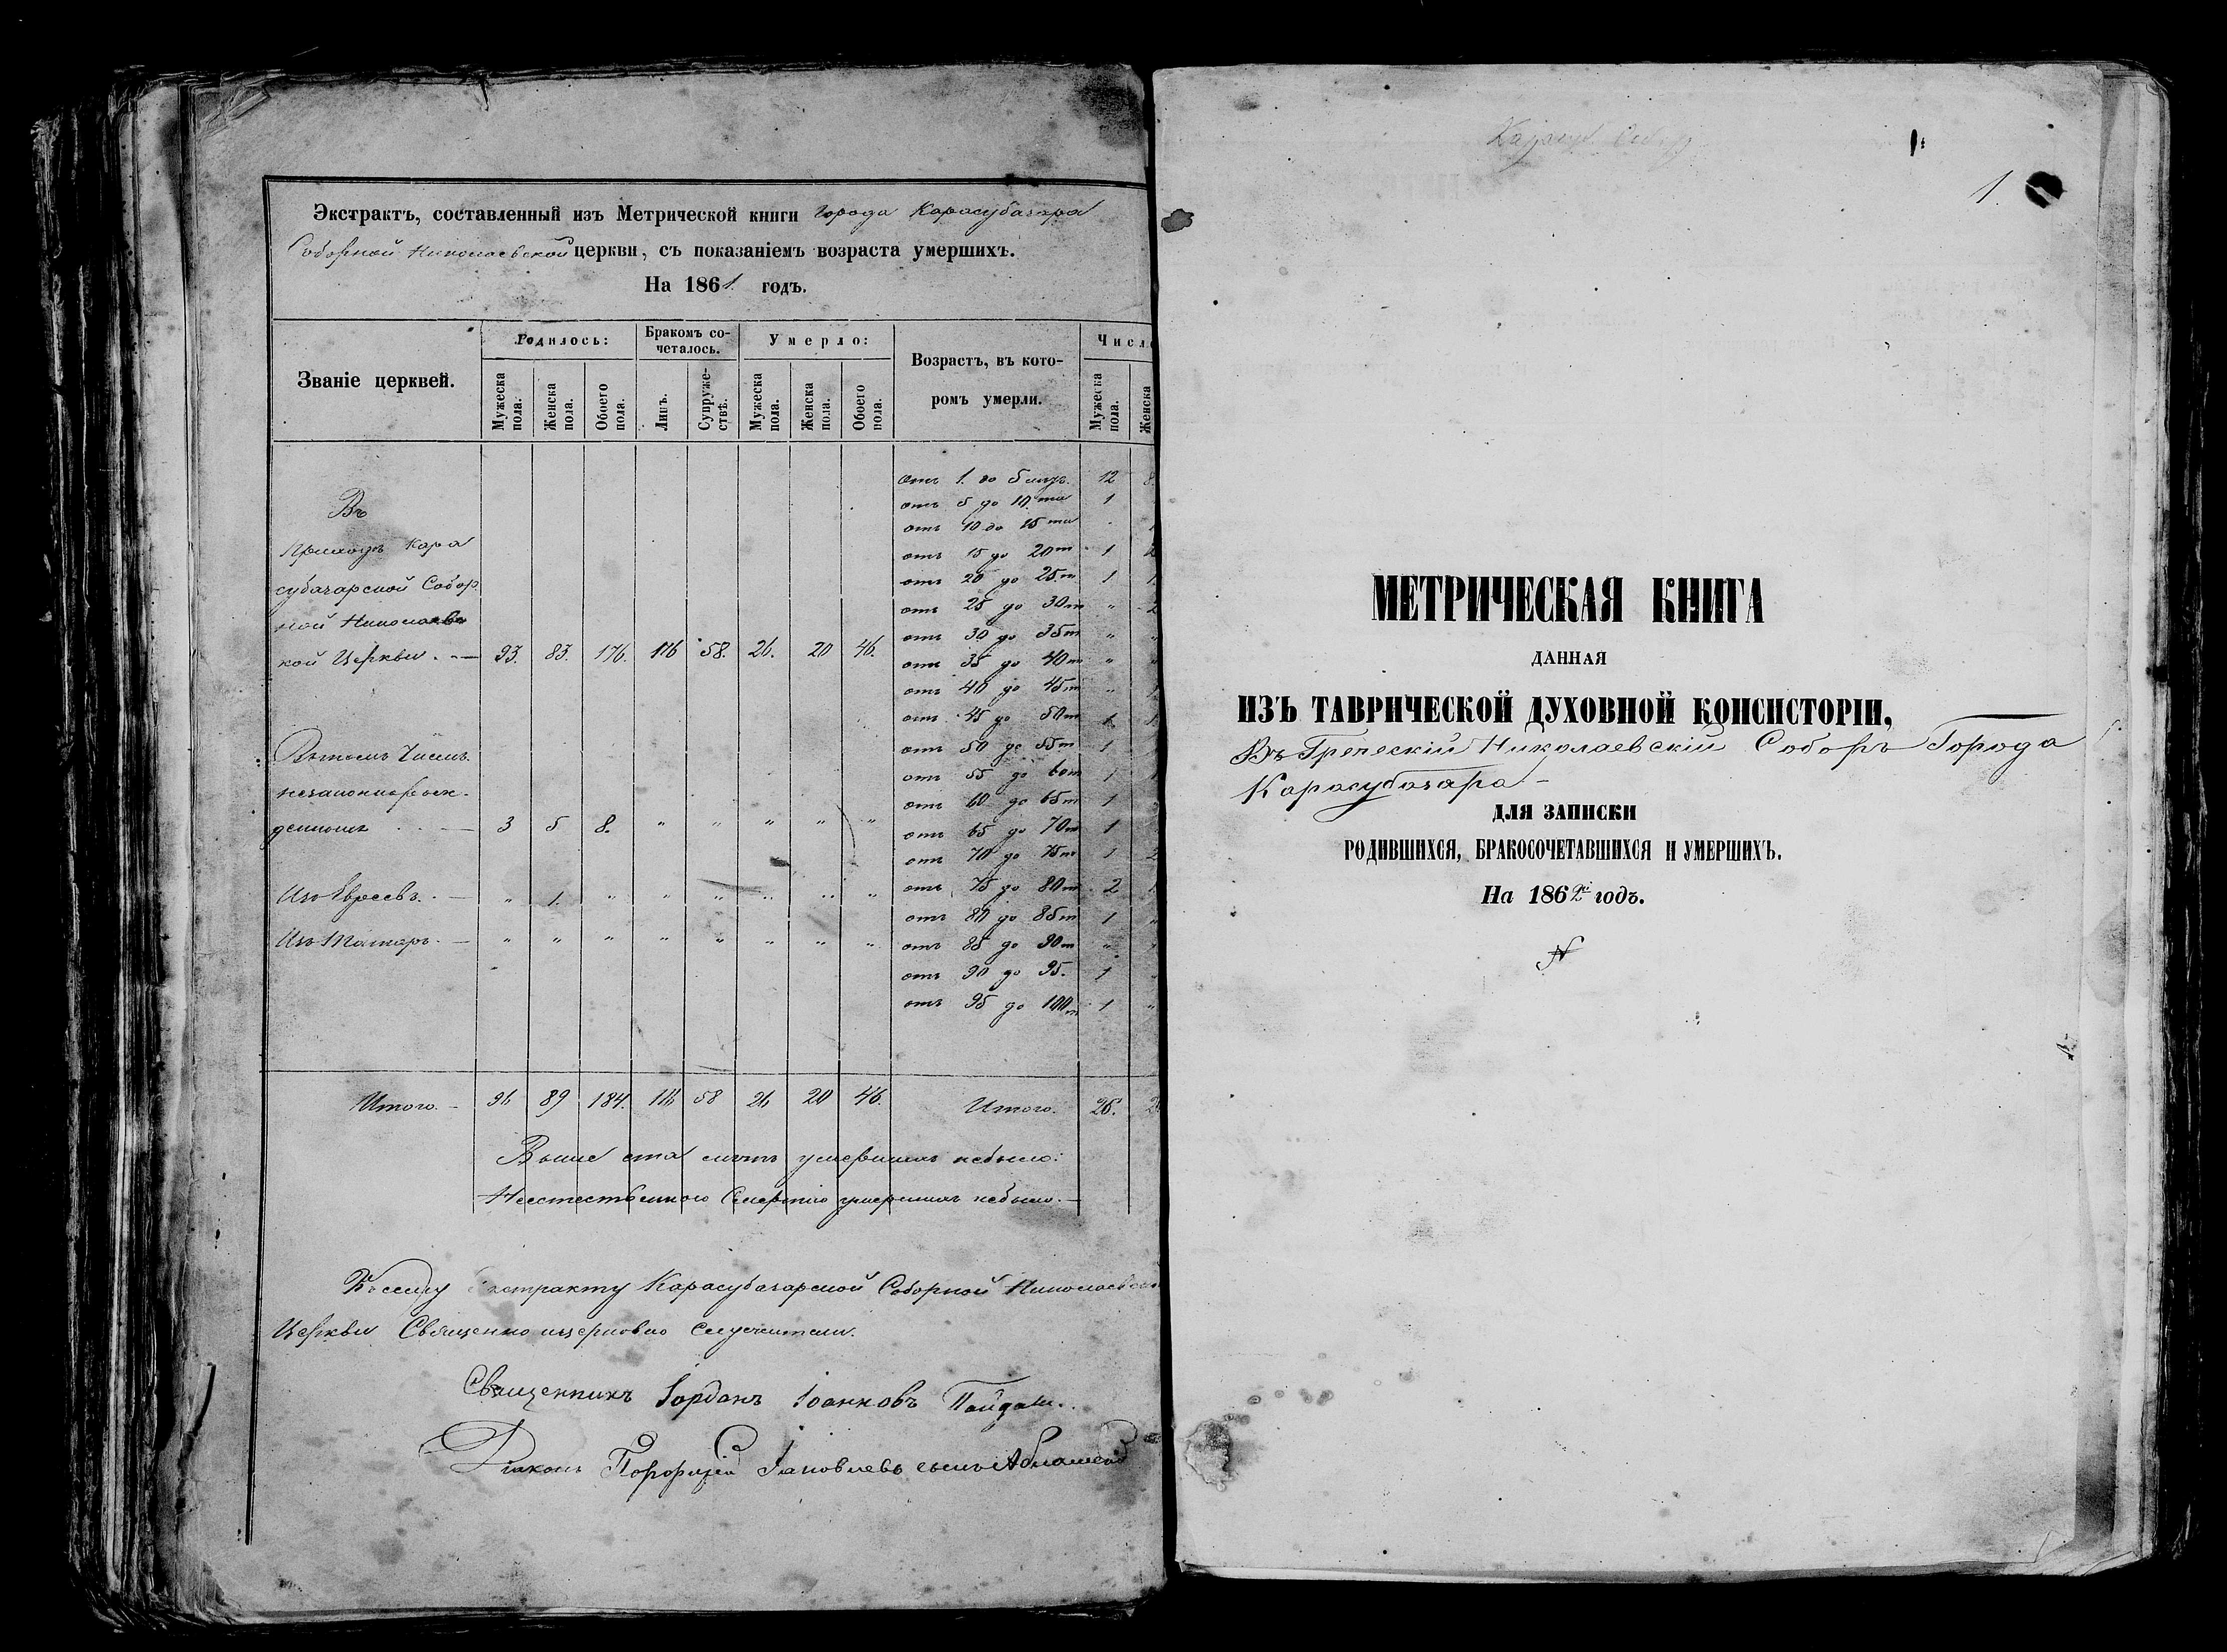 Экстрактъ, составленный изъ Метрической книги города Карасубазара
Соборной Николаевской церкви, съ показаніемъ возраста умершихъ.
На 1861. годъ.
Званіе церквей.
Родилось:
Бракомъ со-
четалось.
Умерло:
Возрастъ, въ кото-
ромъ умерли.
Число
Мужеска пола.
Женска пола.
Обоего пола.
Лицъ.
Супруже-
ствъ.
Мужеска пола.
Женска пола.
Обоего пола.
Мужеска пола.
Женска
Въ
приходѣ Кара
субазарской Собор
ной Николаевс
кой Церкви. — 93. 83. 176. 116 58. 26. 20 46.
Въ томъ числѣ
незаконнорож-
денныхъ . . — 3 5 8. " " " " "
Изъ Евреевъ. — " 1. " " " " " "
Изъ Татаръ. — " " " " " " " "
отъ 1. до 5 12 8.
отъ 5 до 10. 1
отъ 10 до 15 .
отъ 15 до 20 1 2
отъ 20 до 25 1 1.
отъ 25 до 30 " 2
отъ 30 до 35 " "
отъ 35 до 40 " "
отъ 40 до 45 " 1
отъ 45 до 50 1
отъ 50 до 55 1
отъ 55 до 60 1
отъ 60 до 65 1
отъ 65 до 70 1
отъ 70 до 75 1 2
отъ 75 до 80 2
отъ 80 до 85 1 "
отъ 85 до 90 "
отъ 90 до 95. 1
отъ 95 до 100 1 "
Итого. — 96 89 184. 116 58 26 20 46. Итого. 26.
Выше ста лѣтъ умершихъ небыло:
Неестественною Смертію умершихъ небыло. —
Къ сему Экстракту Карасубазарской Соборной Николаевской
Церкви Священно церковно служители.
Священникъ Іорданъ Іоанновъ
Діаконъ Порфирій Яковлевъ сынъ
1.
МЕТРИЧЕСКАЯ КНИГА
ДАННАЯ
ИЗЪ ТАВРИЧЕСКОЙ ДУХОВНОЙ КОНСИСТОРІИ,
Въ Греческій Николаевскій Соборъ Города
Карасубазара —
ДЛЯ ЗАПИСКИ
РОДИВШИХСЯ, БРАКОСОЧЕТАВШИХСЯ И УМЕРШИХЪ.
На 1862й годъ.